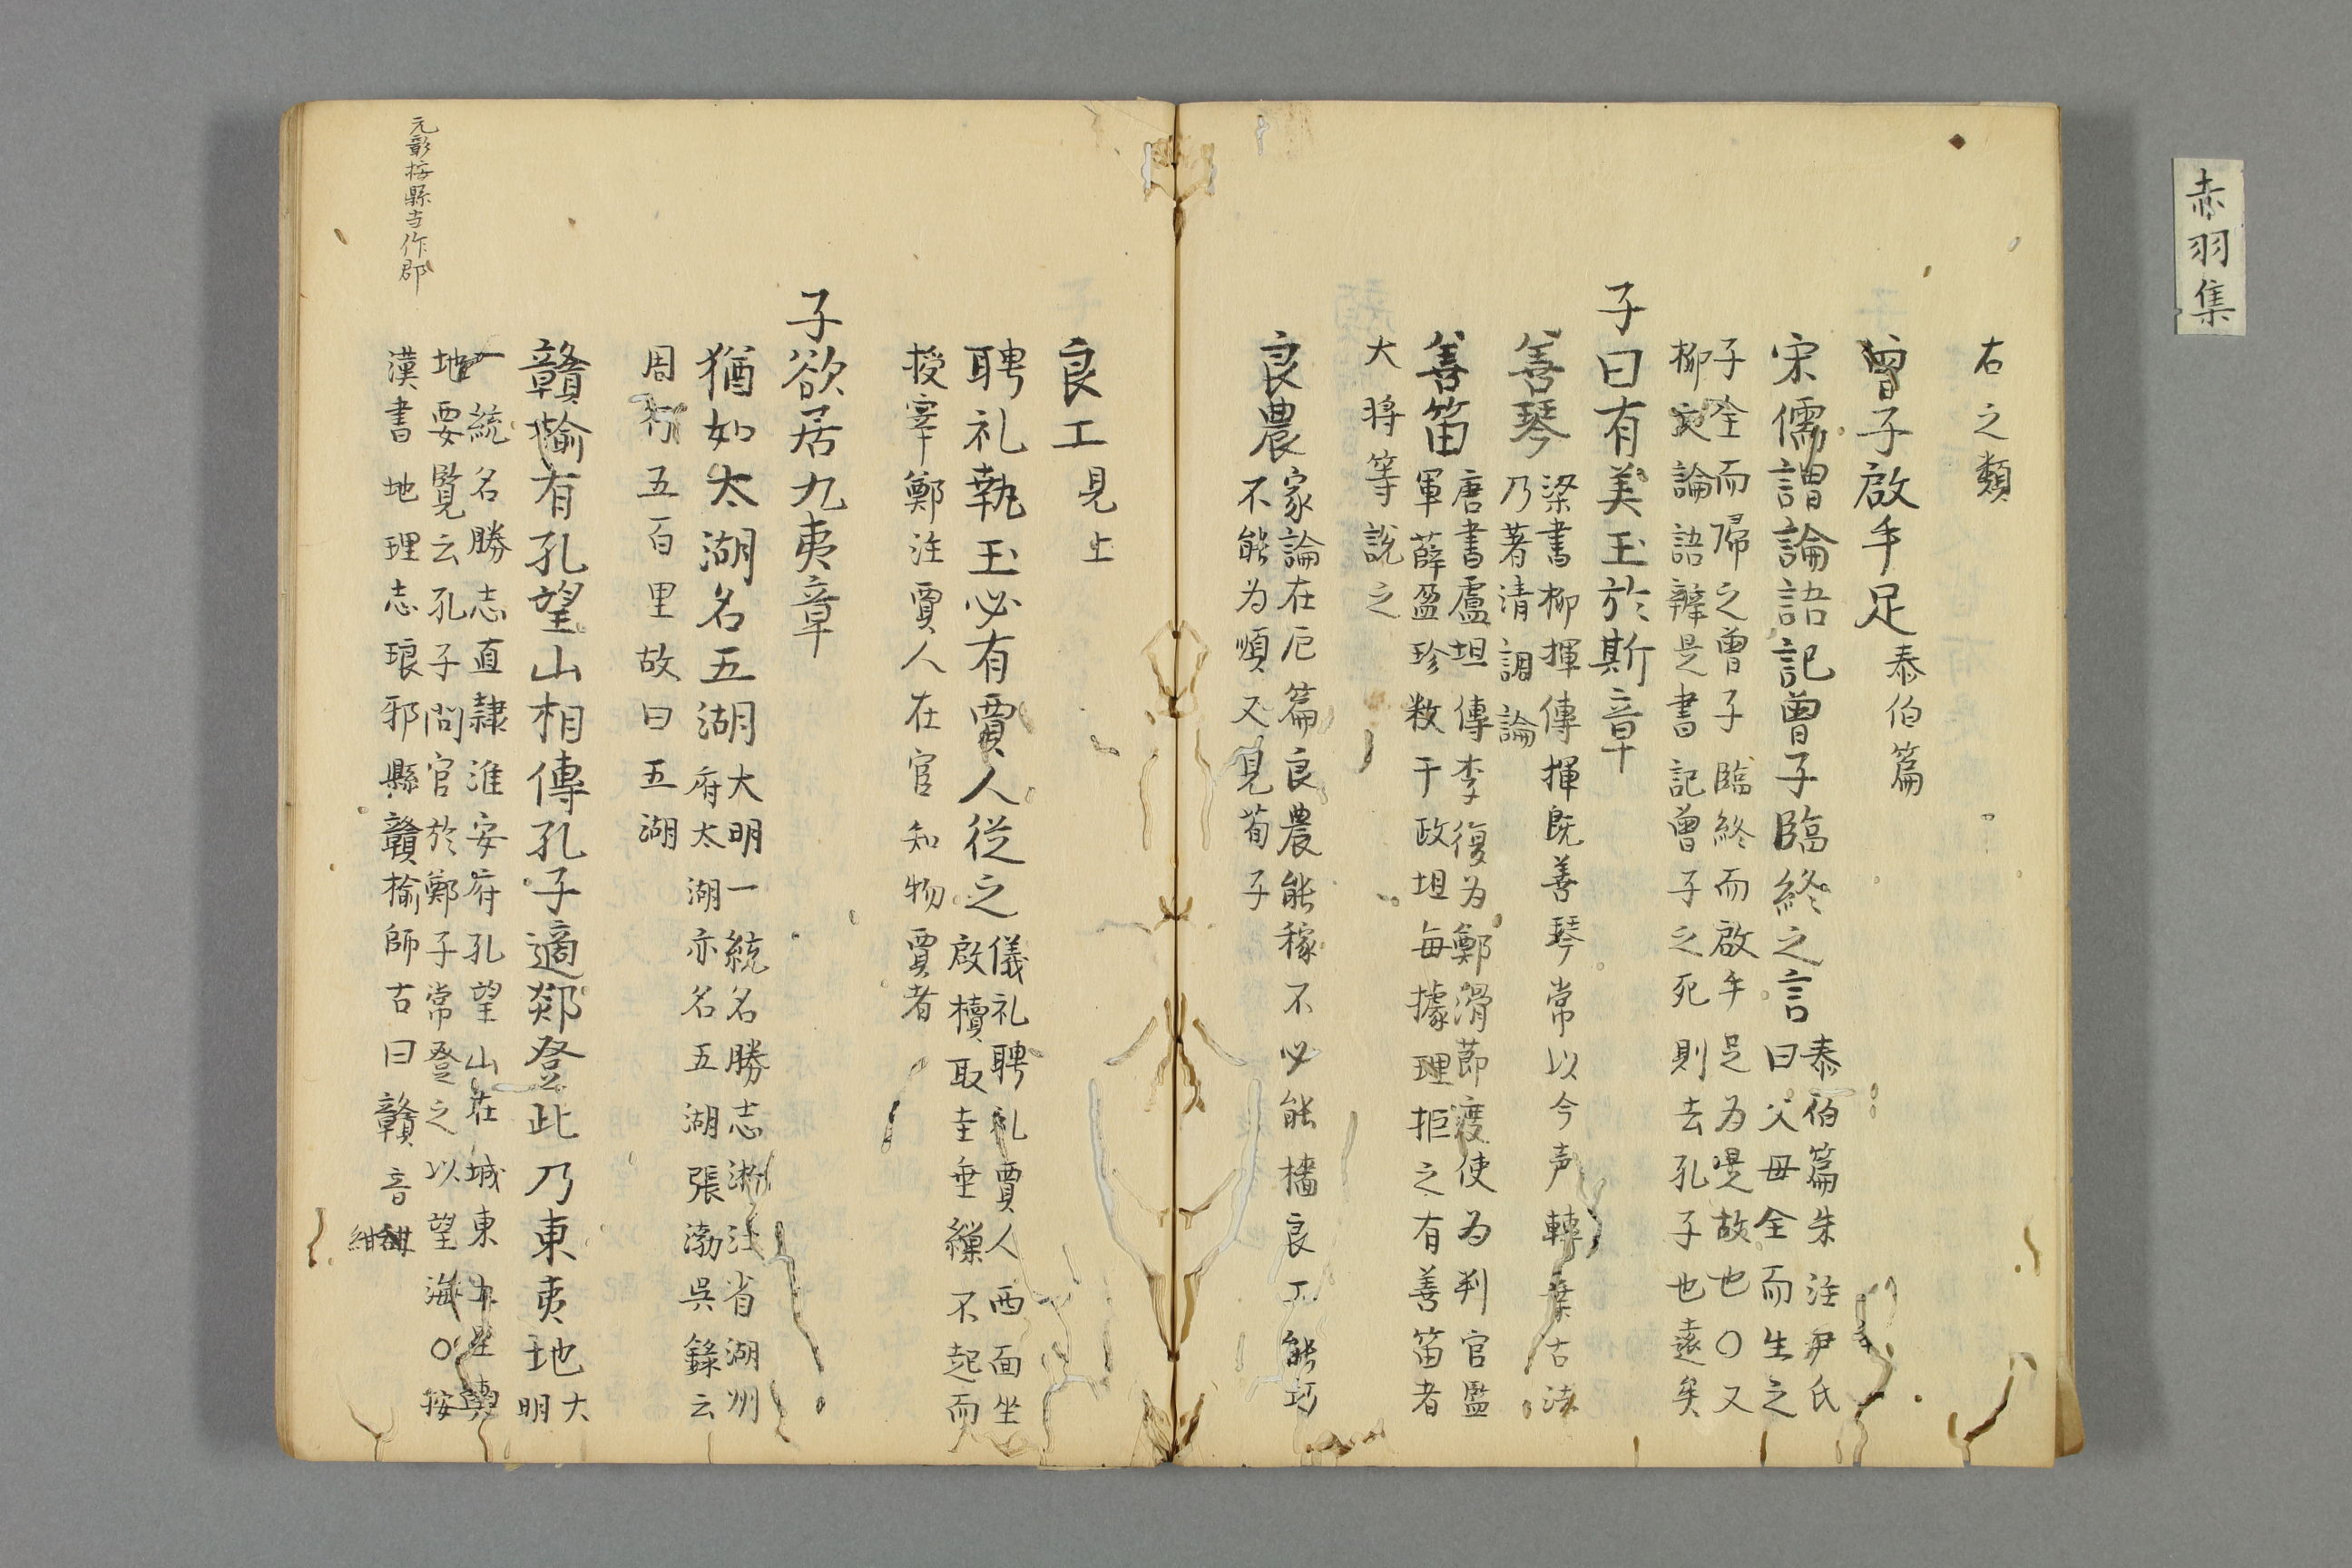 赤羽集
右之類
曽子啟手足 泰伯篇
宋儒謂論語記曽子臨終之言 泰伯篇朱注尹氏
曰父母全而生之
子全而歸之曽子臨終而啟手足为是故也〇又
柳 論語辨是書記曽子之死則去孔子也遠矣
子曰有美玉於斯章
善琴 梁書柳揮傳揮既善琴常以今声轉棄古法
乃著清調論
善笛 唐書盧坦傳李復为鄭滑節度使为判官監
軍薛盈珍数干政坦每據理拒之有善笛者
大將等説之
良農 家論在厄篇良農能稼不必能穡良工能巧
不能为順又見荀子
良工 見上
聘礼執玉必有賈人從之 儀礼聘礼賈人西面坐
啟櫝取圭垂繅不起而
授宰鄭注賈人在官知物賈者
子欲居九夷章
猶如太湖名五湖 大明一統名勝志浙江省湖州
府太湖亦名五湖張渤吳錄云
周行五百里故曰五湖
贛榆有孔望山相傳孔子適郯登此乃東夷地 大
明
一統名勝志直隷淮安府孔望山在城東五里輿
地要覧云孔子問官於鄭子常登之以望海〇按
漢書地理志琅邪縣贛榆師古曰贛音紺
元彰按縣当作郡